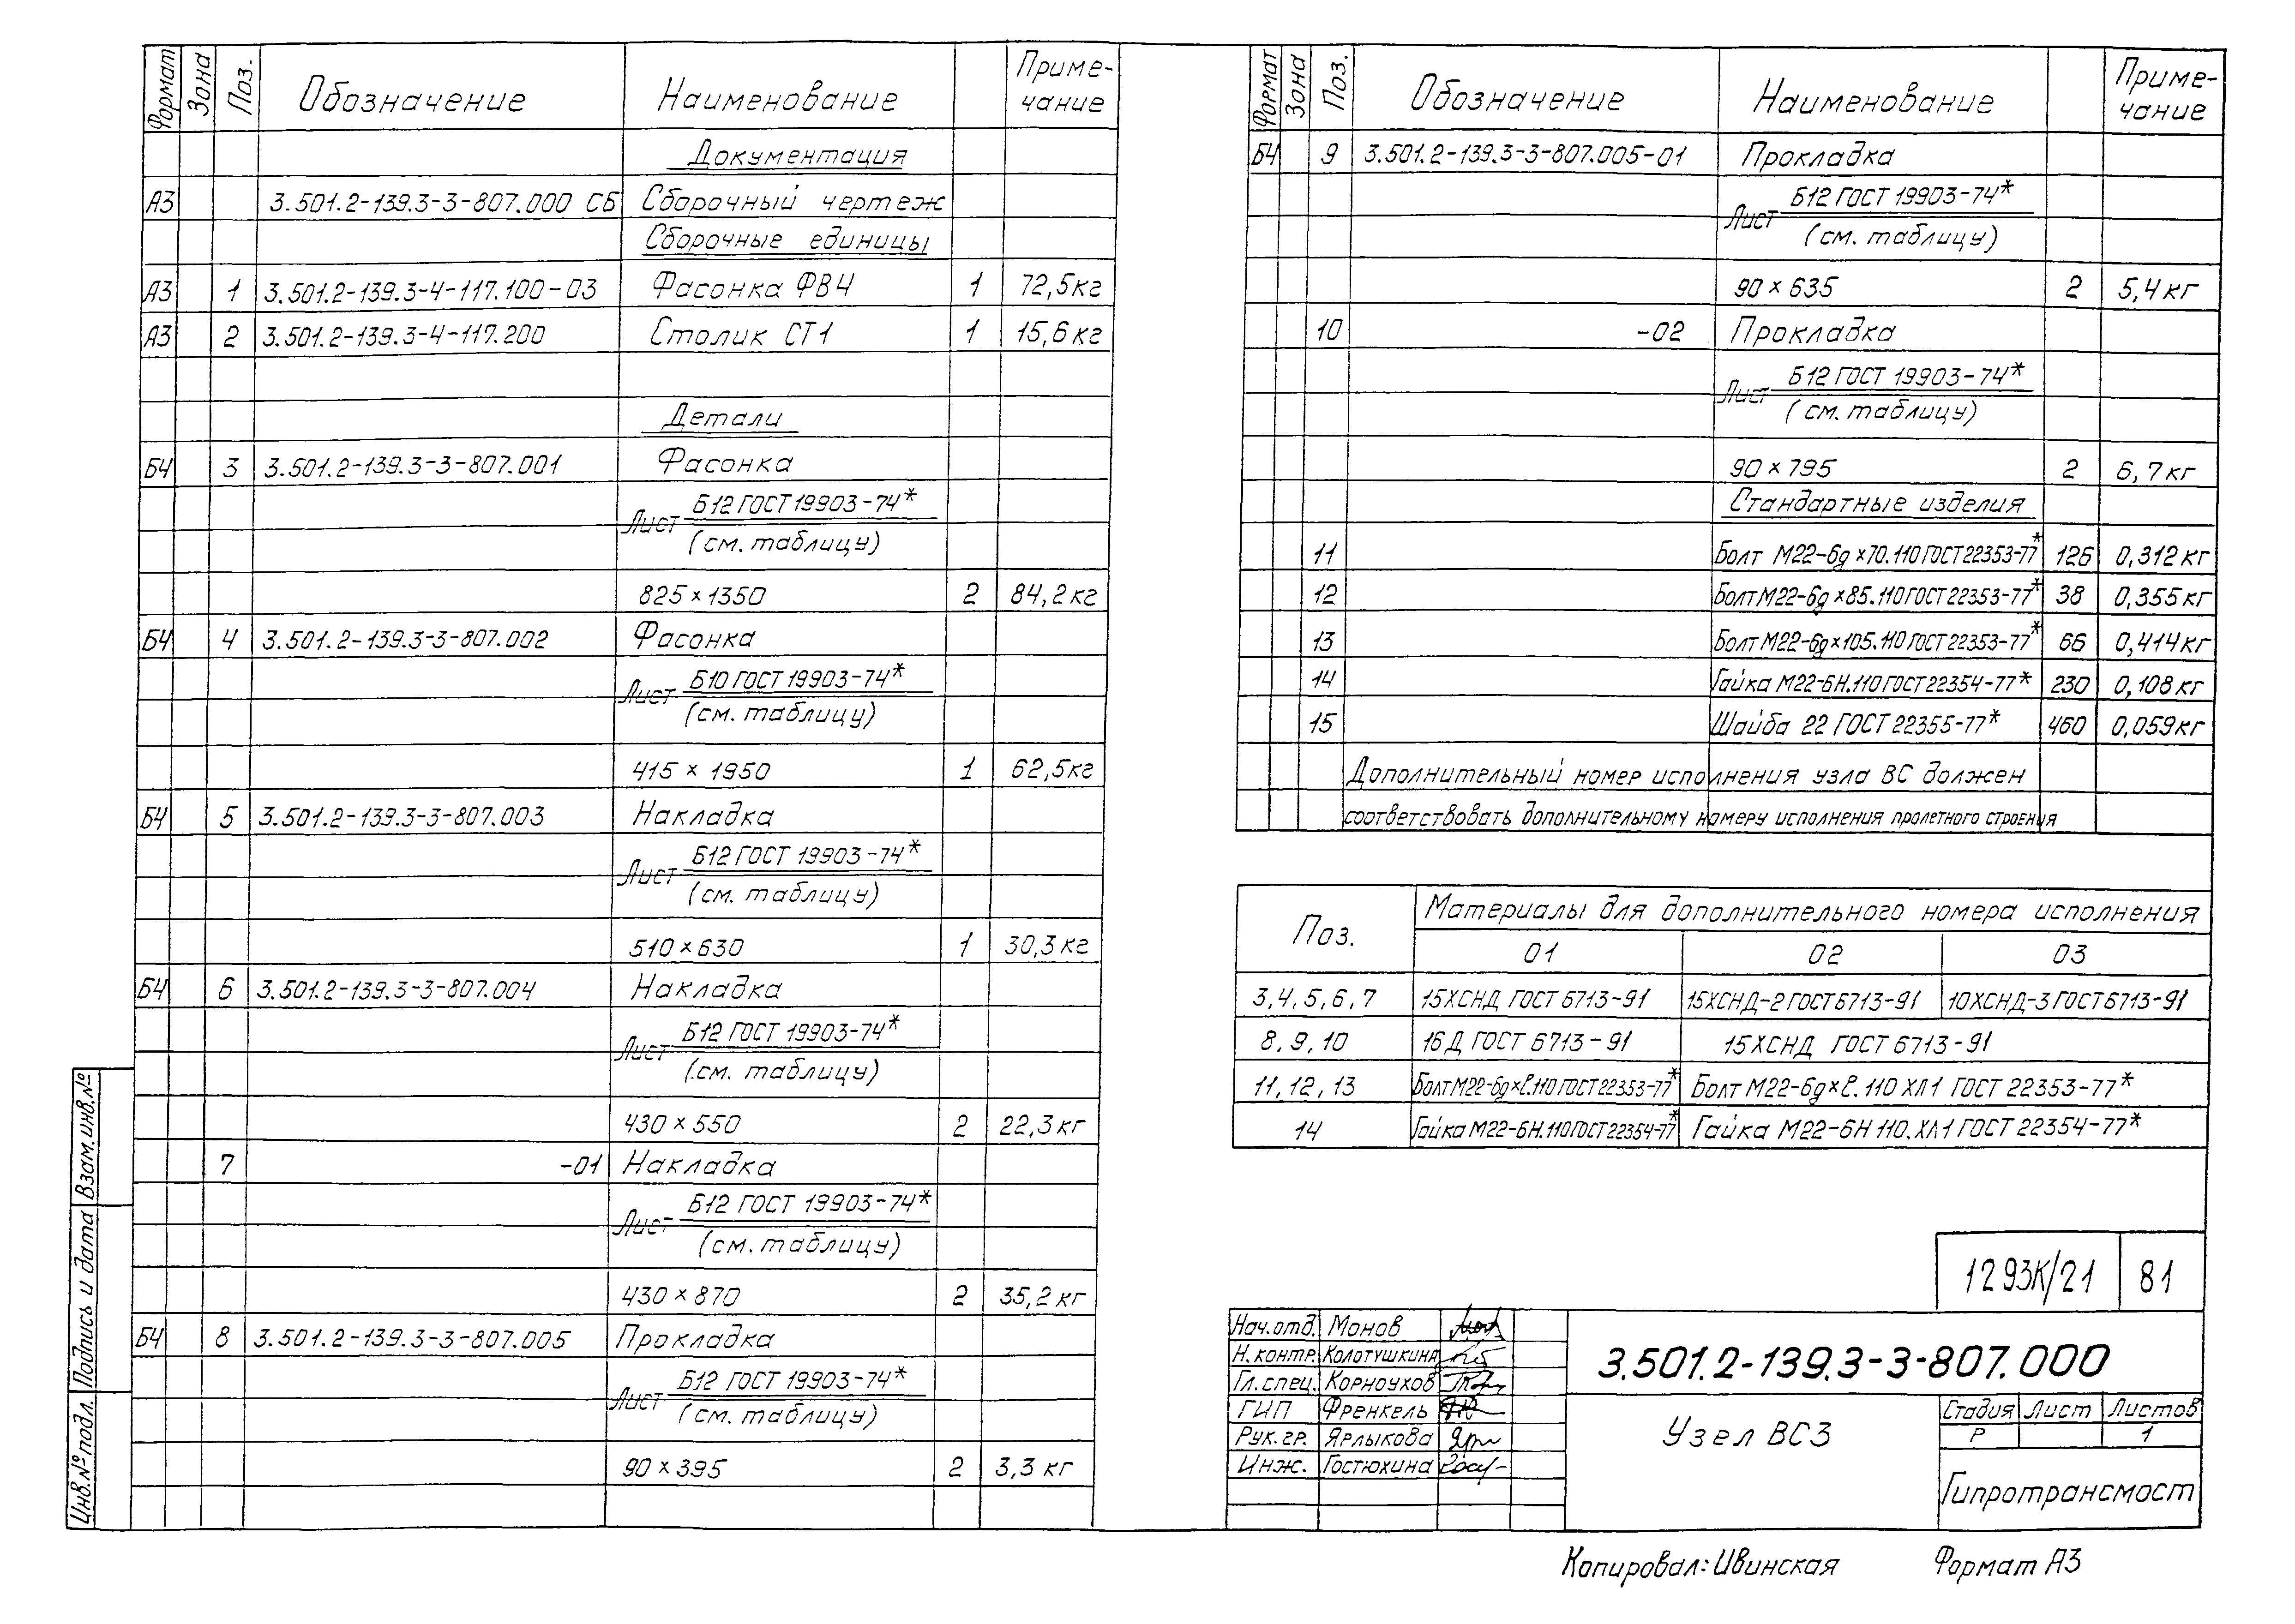 Формат Зона Поз. Обозначение Наименование Приме-
чание
Документация
А3 3.501.2-139.3-3-807.000 СБ Сборочный чертеж
Сборочные единицы
А3 1 3.501.2-139.3-4-117.100-03 Фасонка ФВ4 1 72,5кг
А3 2 3.501.2-139.3-4-117.200 Столик СТ1 1 15,6кг
Детали
БЧ 3 3.501.2-139.3-3-807.001 Фасонка
Лист Б12 ГОСТ 19903-74*
(см. таблицу)
825×1350 2 84,2кг
БЧ 4 3.501.2-139.3-3-807.002 Фасонка
Лист Б10 ГОСТ 19903-74*
(см. таблицу)
415 × 1950 1 62,5кг
БЧ 5 3.501.2-139.3-3-807.003 Накладка
Лист Б12 ГОСТ 19903-74*
(см. таблицу)
510×630 1 30,3кг
БЧ 6 3.501.2-139.3-3-807.004 Накладка
Лист Б12 ГОСТ 19903-74*
(см. таблицу)
430×550 2 22,3кг
7 -01 Накладка
Лист Б12 ГОСТ 19903-74*
(см. таблицу)
430×870 2 35,2кг
БЧ 8 3.501.2-139.3-3-807.005 Прокладка
Лист Б12 ГОСТ 19903-74*
(см. таблицу)
90×395 2 3,3 кг
Формат Зона Поз. Обозначение Наименование Приме-
чание
БЧ 9 3.501.2-139.3-3-807.005-01 Прокладка
Лист Б12 ГОСТ 19903-74*
(см. таблицу)
90×635 2 5,4кг
10 -02 Прокладка
Лист Б12 ГОСТ 19903-74*
(см. таблицу)
90×795 2 6,7кг
Стандартные изделия
11 Болт М22-6g×70.110 ГОСТ 22353-77* 126 0,312кг
12 Болт М22-6g×85.110 ГОСТ 22353-77* 38 0,355кг
13 Болт М22-6g×105.110 ГОСТ 22353-77* 66 0,414кг
14 Гайка М22-6Н.110 ГОСТ 22354-77* 230 0,108кг
15 Шайба 22 ГОСТ 22355-77* 460 0,059кг
Дополнительный номер исполнения узла ВС должен
соответствовать дополнительному номеру исполнения пролетного строения
Поз. Материалы для дополнительного номера исполнения
01 02 03
3,4,5,6,7 15ХСНД ГОСТ 6713-91 15ХСНД-2 ГОСТ 6713-91 10ХСНД-3 ГОСТ 6713-91
8,9,10 16Д ГОСТ 6713-91 15ХСНД ГОСТ 6713-91
11,12,13 Болт М22-6g×ℓ.110 ГОСТ 22353-77* Болт М22-6g×ℓ.110 ХЛ1 ГОСТ 22353-77*
14 Гайка М22-6Н.110 ГОСТ 22354-77* Гайка М22-6Н 110.ХЛ1 ГОСТ 22354-77*
1293К/21 81
Нач.отд. Монов
Н.контр. Колотушкина
Гл.спец. Корноухов
ГИП Френкель
Рук.гр. Ярлыкова
Инж. Гостюхина
3.501.2-139.3-3-807.000
Узел ВС3
Стадия Лист Листов
Р 1
Гипротрансмост
Взам.инв.№
Подпись и дата
Инв.№ подл.
Копировал: Ивинская Формат А3